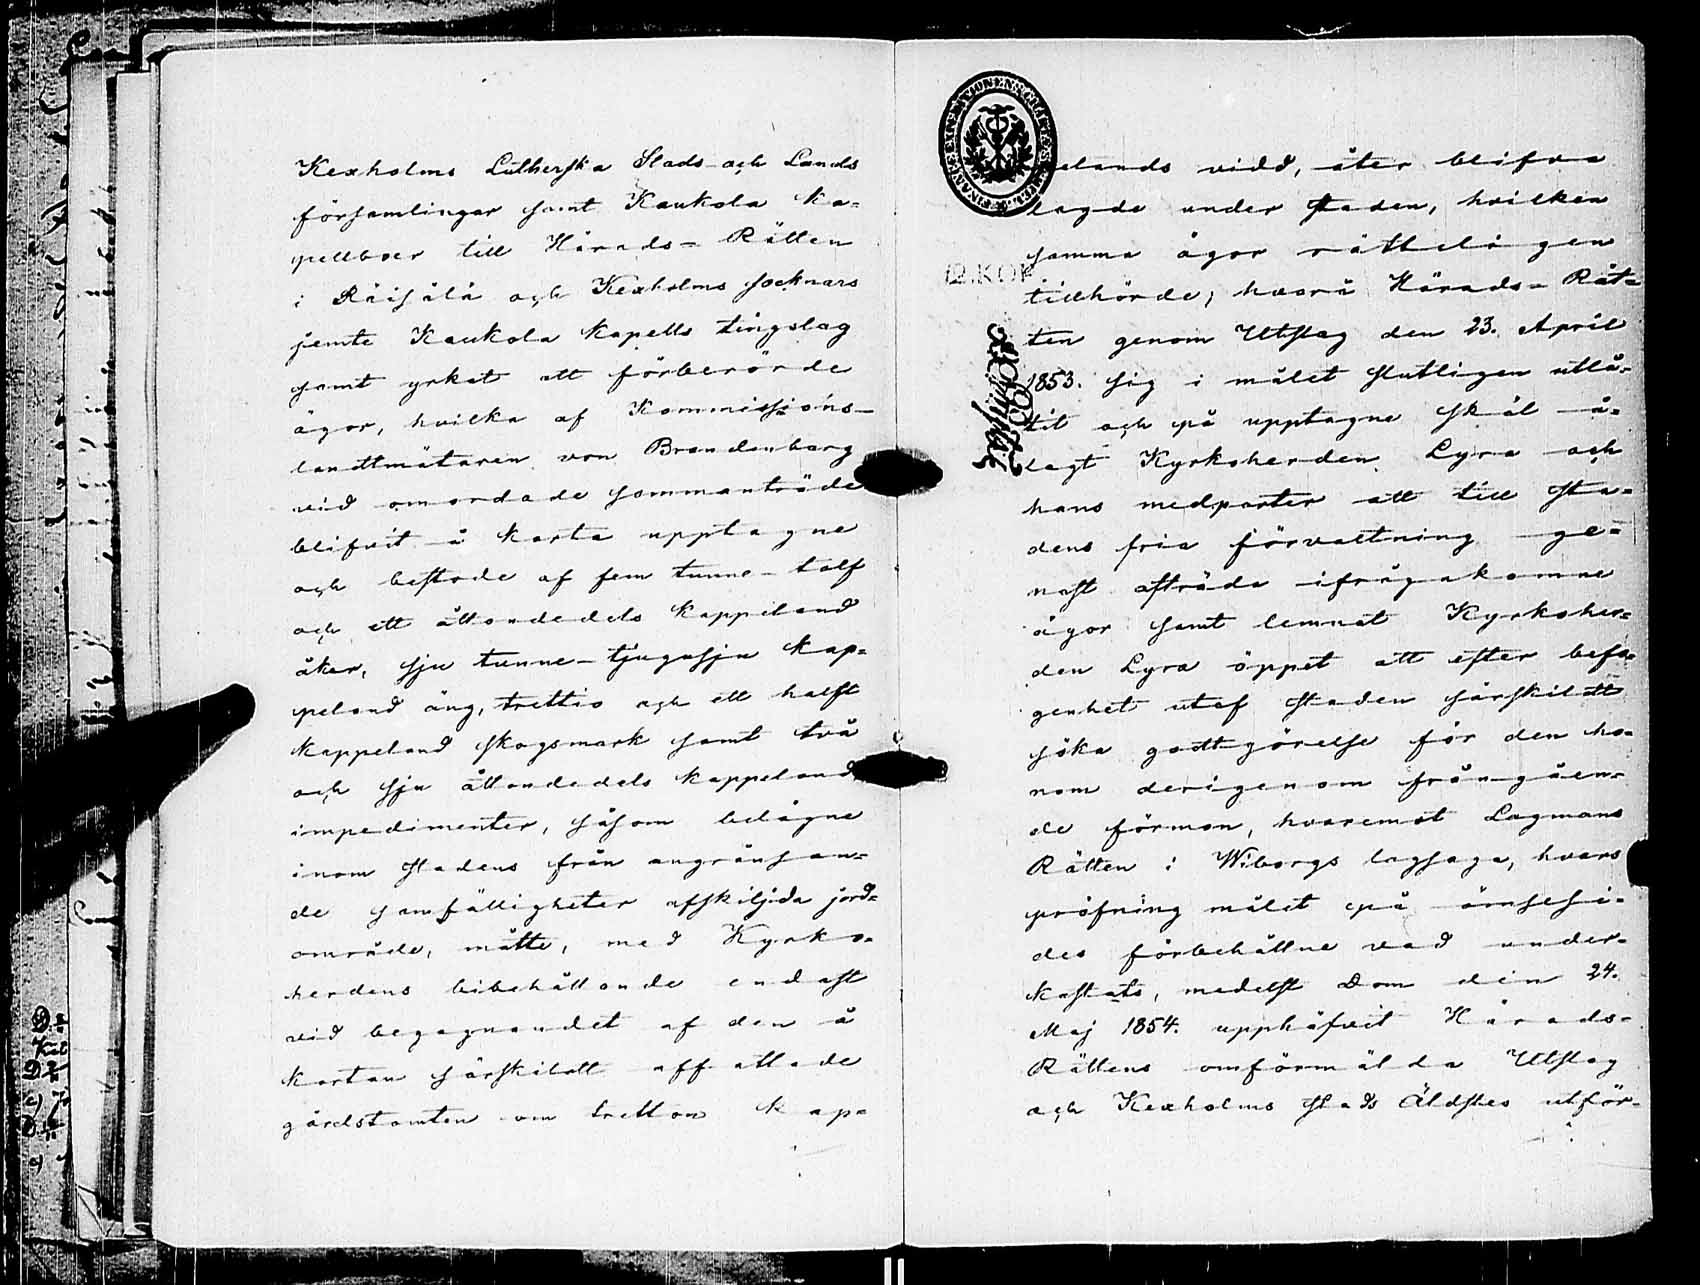 Kexholms Lutherska Stads- och Lands
församlingar samt Kaukola Ka-
pellboer till Härads-Rätten
i Räisälä och Kexholms socknars
jemte Kaukola Kapells tingslag
samt yrkat att förberörde
ägor, hvilka af Kommissions-
landtmätaren von Brandenburg
vid omordade sammanträde
blifvit å karta upptagne
och bestode af fem tunne- tolf
och ett åttondedels kappeland
åker, sju tunne- tjugusju kap-
peland äng, trettio och ett halft
kappeland skogsmark samt två
och sju åttondedels kappeland
impedimenter, såsom belägne
inom stadens från angränsan-
de samfälligheter afskiljda jord-
område, måtte, med Kyrko-
herdens bibehållande endast
vid begagnandet af den å
kartan särskildt affattade
gårdstomten om tretton kap-
pelands vidd, åter blifva
lagde under staden, hvilken
samma ägor rätteligen
tillhörde; hvarå Härads-Rät-
ten genom Utslag den 23. April
1853. sig i målet slutligen utlå-
tit och på upptagne skäl å-
lagt Kyrkoherden Lyra och
hans medparter att till sta-
dens fria förvaltning ge-
nast afträda ifrågakomne
ägor samt lemnat Kyrkoher-
den Lyra öppet att efter befo-
genhet utaf staden särskildt
söka godtgörelse för den ho-
nom derigenom frångåen-
de förmon, hvaremot Lagmans
Rätten i Wiborgs lagsaga, hvars
pröfning målet på ömsesi-
des förbehållne vad under-
kastats, medelst Dom den 24.
Maj 1854. upphäfvit Härads-
Rättens omförmälda Utslag
och Kexholms stads Äldstes utför-
12.KOP